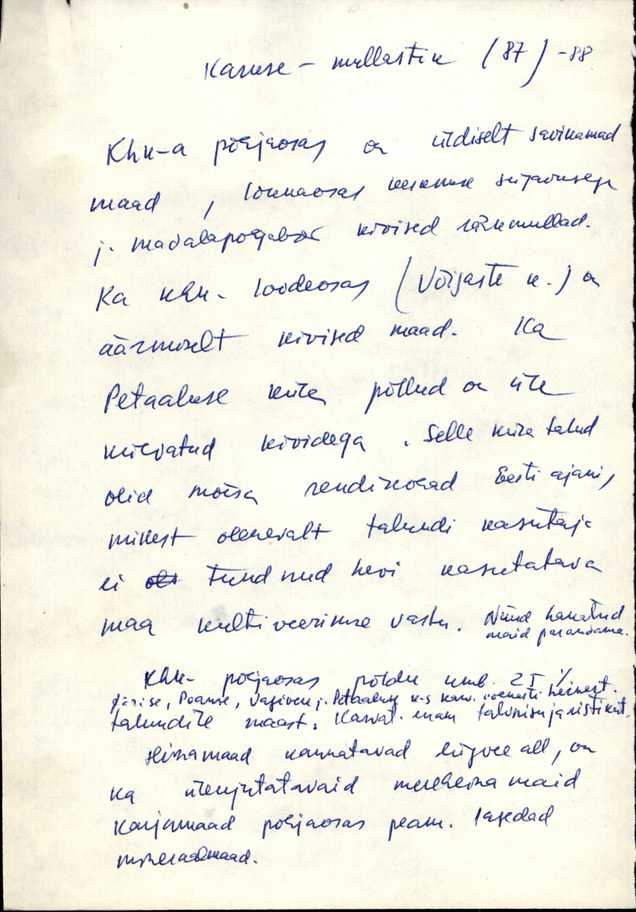 Karuse – mullastik (87) -88
Khk-a põhjaosas on üldiselt savikamad
maad, lõunaosas keskmise sügavusega
j. madalapõhjal. kivised rähkmullad.
Ka khk. loodeosas (Võigaste k.) on
äärmiselt kivised maad. Ka
Petaaluse küla põllud on üle
külvatud kividega. Selle küla talud
olid mõisa rendikohad Eesti ajani,
millest olenevalt talundi kasutaja
ei tundnud huvi kasutatava
maa kultiveerimise vastu. Nüüd hakatud
maid parandama.
Khk- põhjaosas põldu umb. 25 %
Petaaluse
talundite maast. Kasvat. enam talinisu ja ristikut.
Heinamaad kannatavad liigvee all, on
ka üleujutatavaid mereheinamaid
Karjamaad põhjaosas peam. lagedad
mineraalmaad.